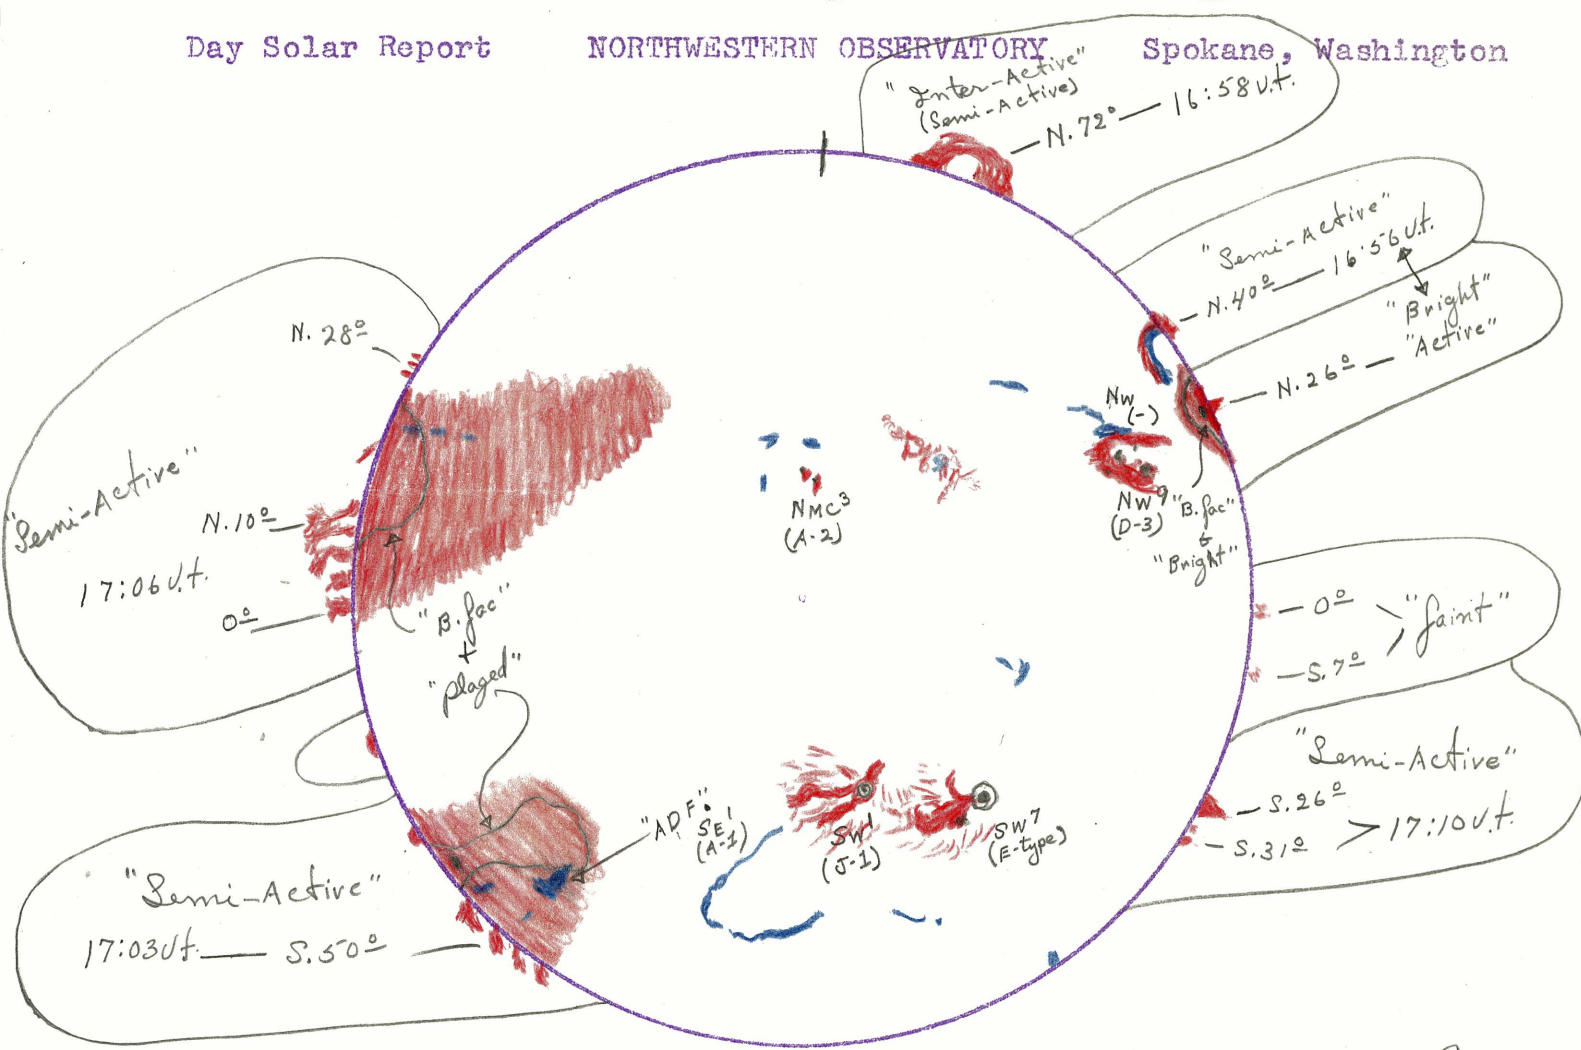 Day Solar Report NORTHWESTERN OBSERVATORY Spokane, Washington
"Inter-Active"
(Semi-Active)
N.72º — 16:58 U.t.
"Semi-Active"
N.40º — 16:56 U.t.
"Bright"
"Active"
N.26º
N. 28º
"Semi-Active"
N.10º
17:06 U.t.
0º
"B.fac"
+
"plaged"
NMC3
(A-2)
NW
(-)
NW9
(D-3)
"B.fac"
&
"Bright"
0º
"faint"
S.7º
"Semi-Active"
S.26º
17:10 U.t.
S.31º
"ADF"
SE1
(A-1)
SW1
(J-1)
SW7
(E-type)
"Semi-Active"
17:03 Ut. — S.50º